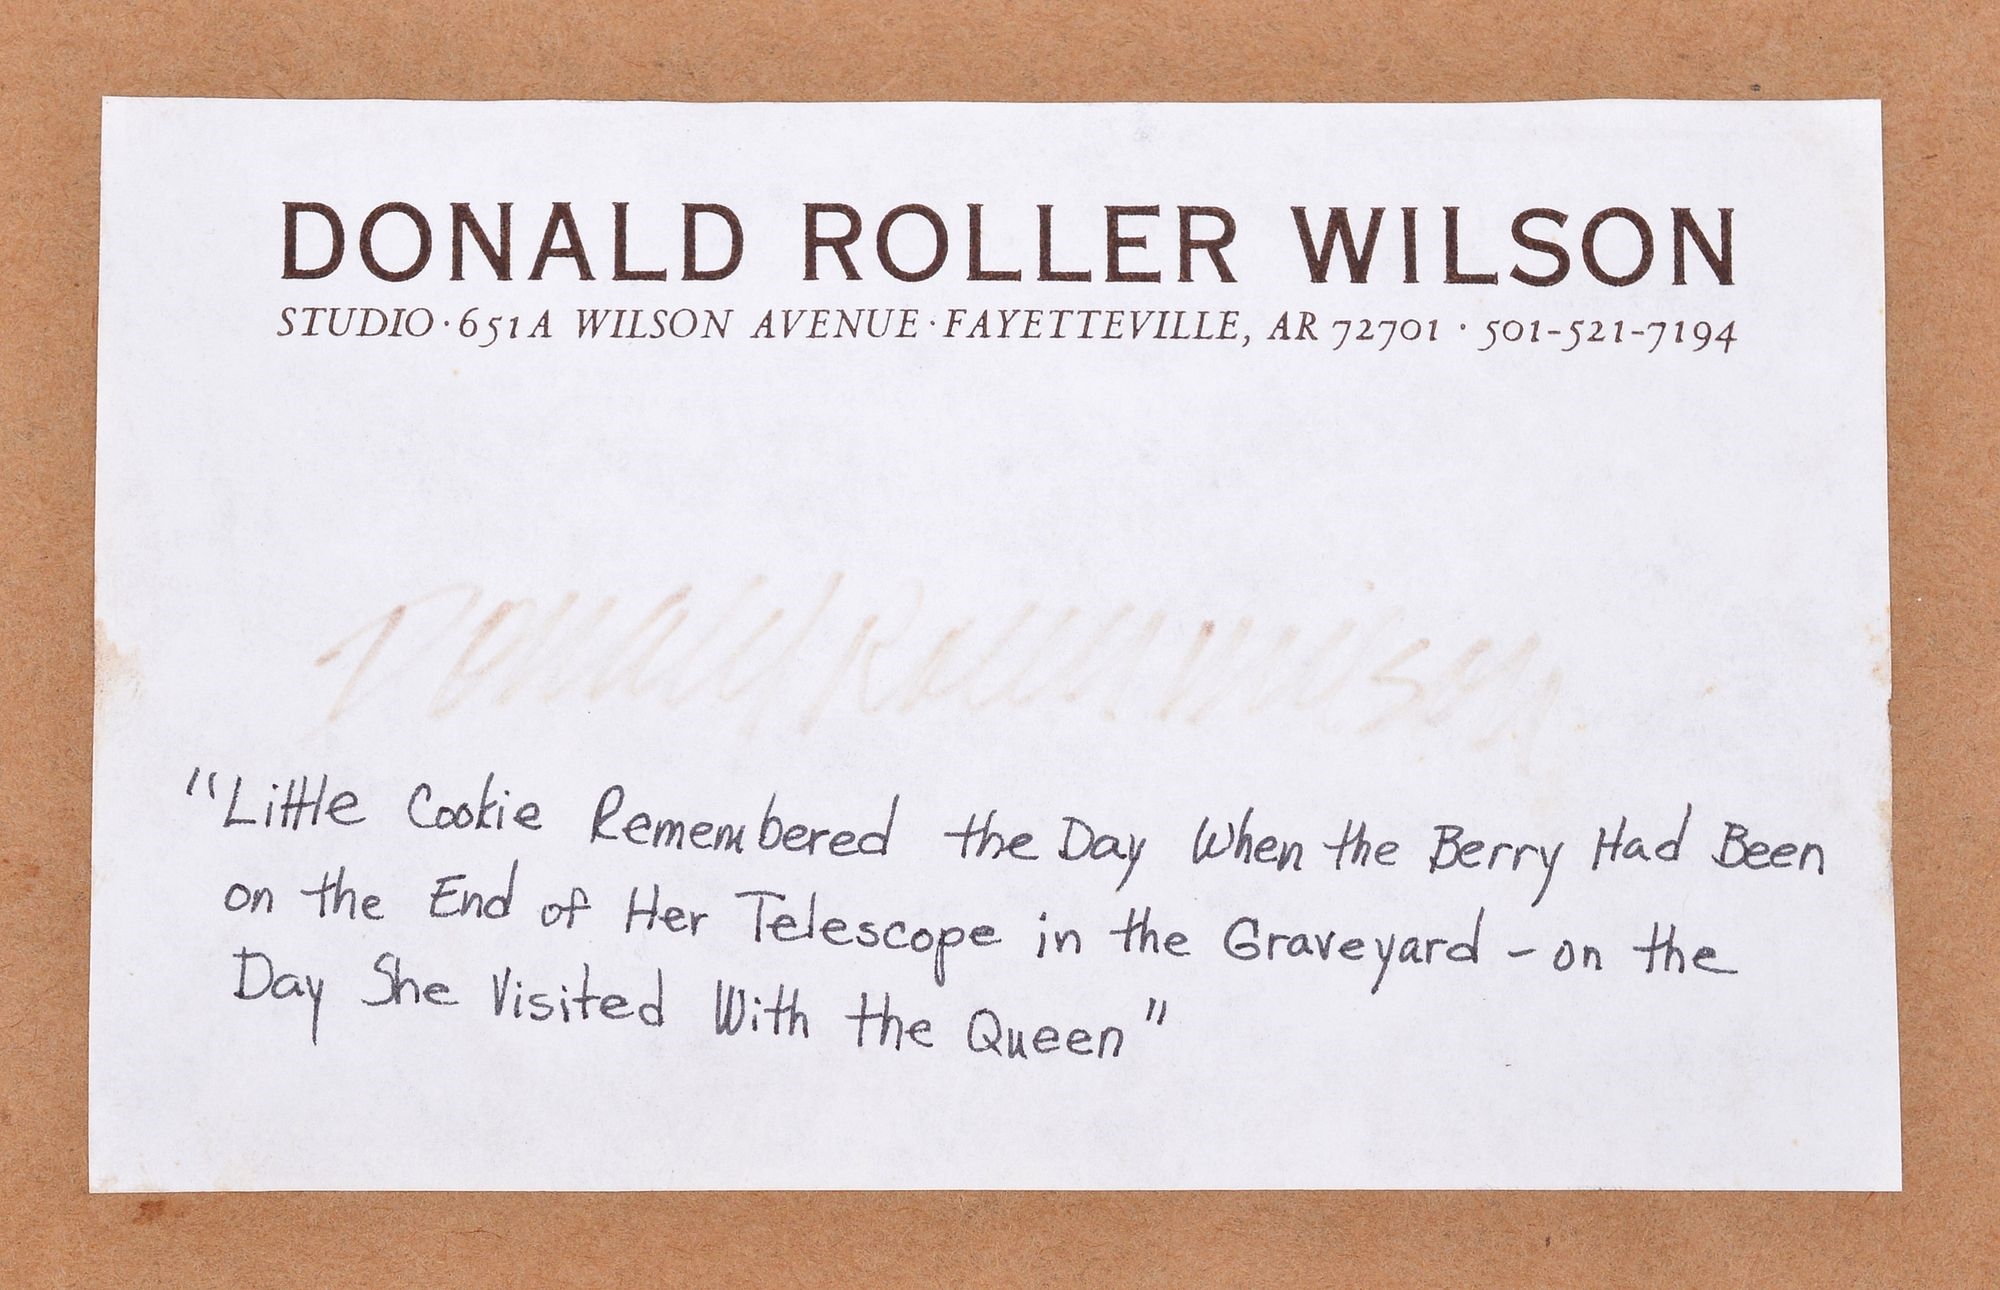 DONALD ROLLER WILSON
STUDIO·651A WILSON AVENUE·FAYETTEVILLE, AR 72701 · 501-521-7194
Donald Roller Wilson
"Little Cookie Remembered the Day When the Berry Had Been
on the End of Her Telescope in the Graveyard – on the
Day She Visited With the Queen"